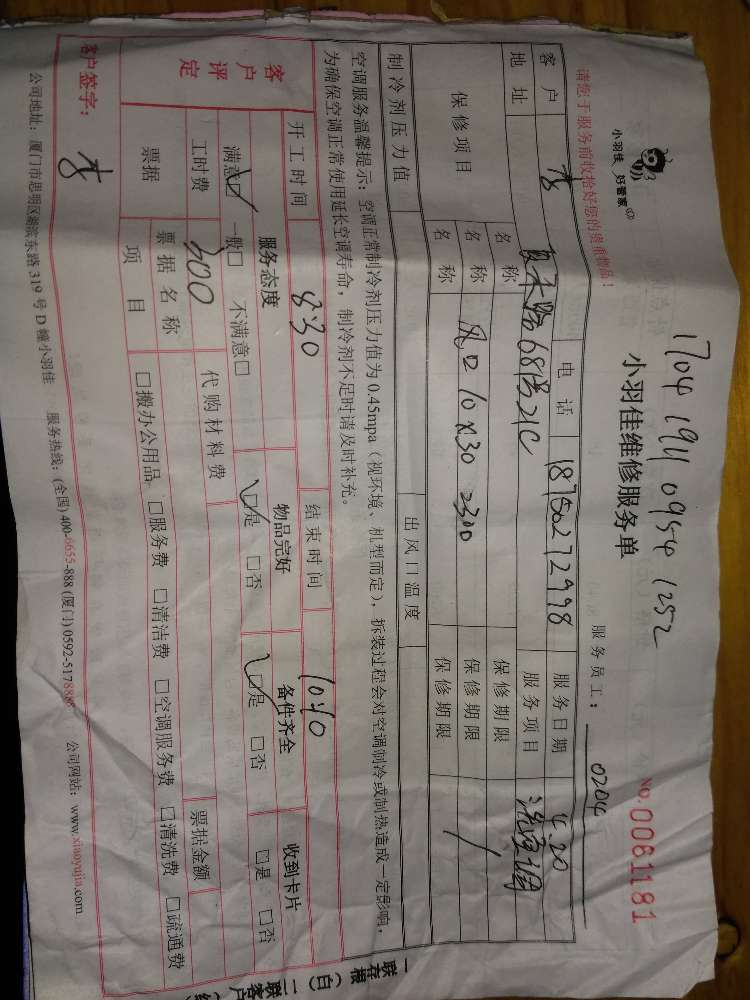 1704 1911 0954 1252
小羽佳 好管家
小羽佳维修服务单
NO.0061181
请您于服务前收拾好您的贵重物品！
服务员工： 0204
客户 李 电话 18750272998 服务日期 4.20
地址 681号21C 服务项目 洗空调
保修项目 名称 保修期限
名称 风口10×30 2300 保修期限
名称 保修期限
制冷剂压力值 出风口温度
空调服务温馨提示：空调正常制冷剂压力值为0.45mpa（视环境、机型而定），拆装过程会对空调制冷或制热造成一定影响，
为确保空调正常使用延长空调寿命，制冷剂不足时请及时补充。
开工时间 8:30 结束时间 10:10
客户评定 服务态度 物品完好 备件齐全 收到卡片
满意☑ 一般□ 不满意□ ☑是 □否 ☑是 □否 □是 □否
工时费 300 代购材料费
票据 票据名称 票据金额
项目 □搬办公用品 □服务费 □清洁费 □空调服务费 □清洗费 □疏通费
客户签字： 李
公司地址：厦门市思明区湖滨东路319号D幢小羽佳 服务热线：(全国)400-6655-888 (厦门)0592-5178888 公司网站：www.xiaoyujia.com
一联存根（白）二联客户